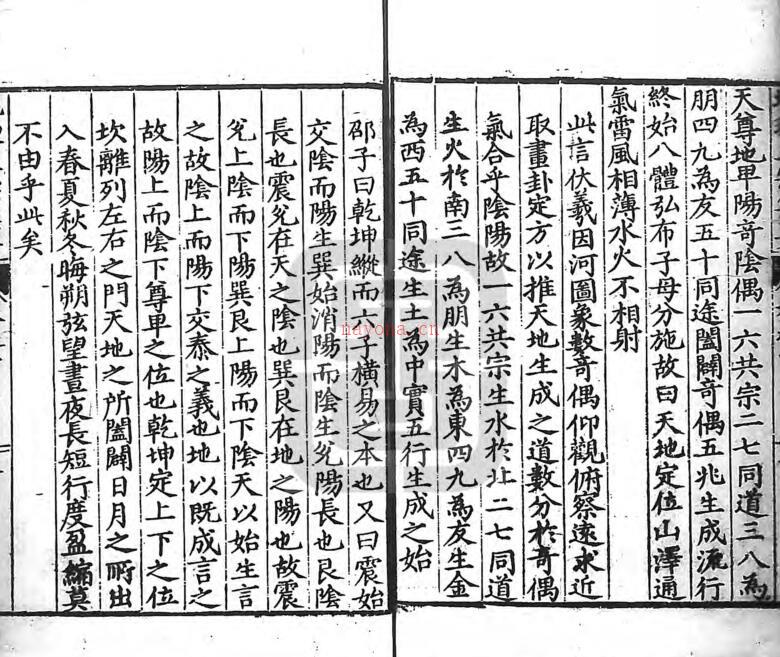 天尊地卑陽奇陰偶一六共宗二七同道三八為
朋四九為友五十同途闔闢奇偶五兆生成流行
終始八體弘布子母分施故曰天地定位山澤通
氣雷風相薄水火不相射
此言伏羲因河圖象數奇偶仰觀俯察遠求近
取畫卦定方以推天地生成之道數分於奇偶
氣合乎陰陽故一六共宗生水於北二七同道
生火於南三八為朋生木為東四九為友生金
為西五十同途生土為中實五行生成之始
邵子曰乾坤縱而六子橫易之本也又曰震始
交陰而陽生巽始消陽而陰生兌陽長也艮陰
長也震兌在天之陰也巽艮在地之陽也故震
兌上陰而下陽巽艮上陽而下陰天以始生言
之故陰上而陽下交泰之義也地以既成言之
故陽上而陰下尊卑之位也乾坤定上下之位
坎離列左右之門天地之所闔闢日月之所出
入春夏秋冬晦朔弦望晝夜長短行度盈縮莫
不由乎此矣
nayona.cn